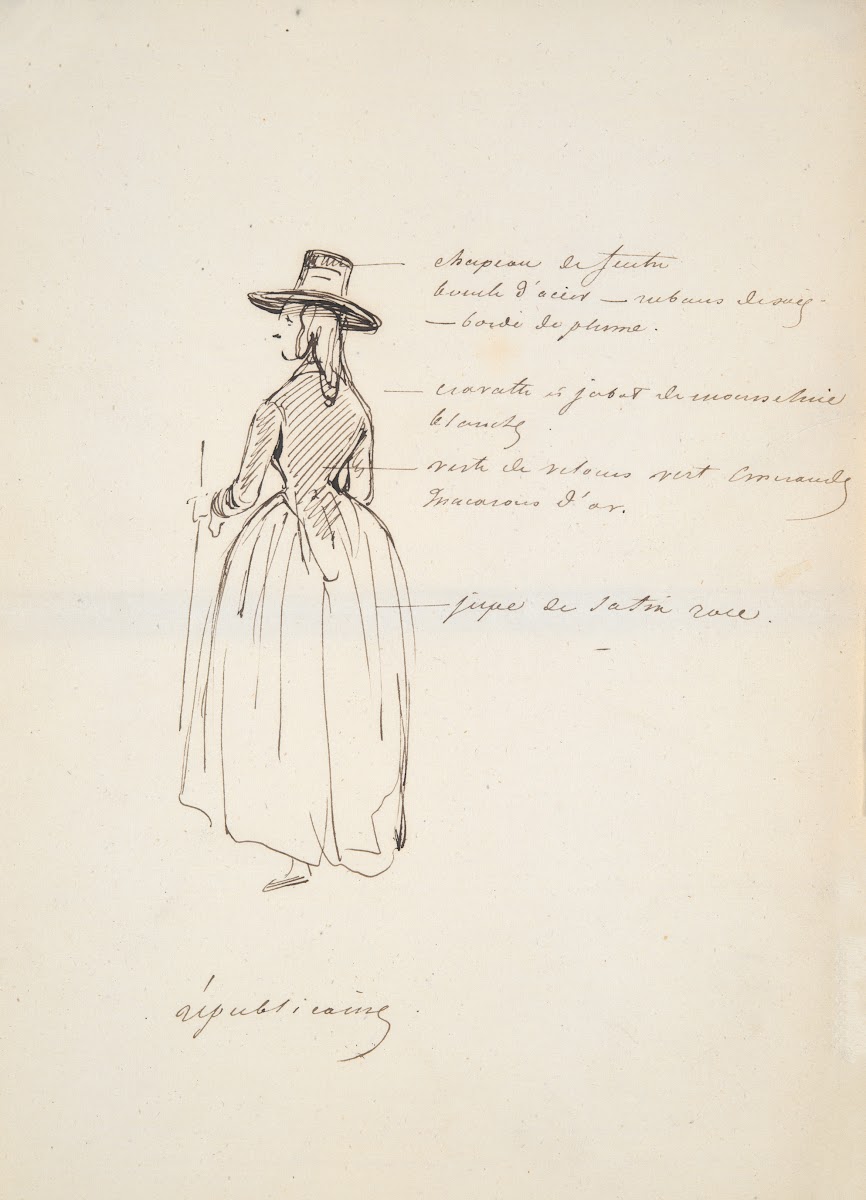 chapeau de feutre
boucle d'acier — rubans de soie -
— bordé de plume.
cravatte et jabot de mousseline
blanche.
veste de velours vert emeraude
macarons d'or.
jupe de satin rose.
républicaine